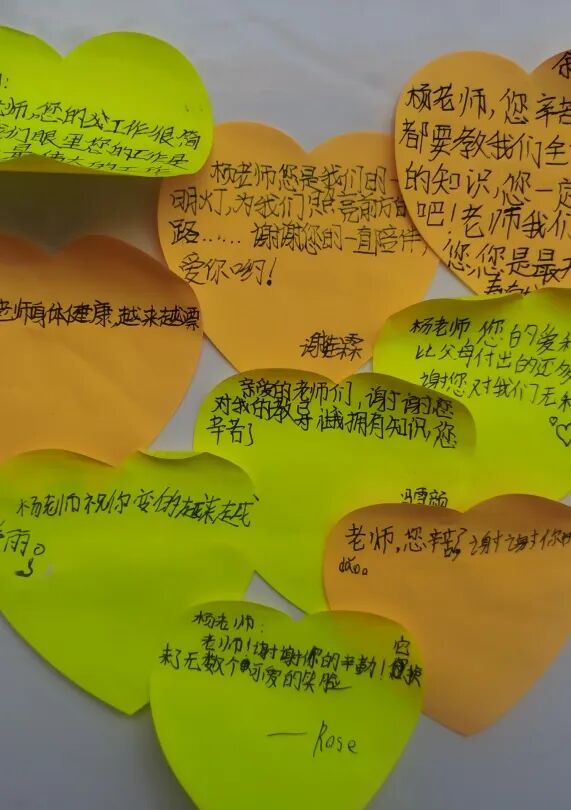 老师,您的工作很简
们眼里您的工作是
是伟大的工作
杨老师您是我们的一
明灯,为我们照亮前方的
路……谢谢您的一直陪伴
爱你哟!
谢佳霖
杨老师,您辛苦
都要教我们全
的知识,您一定
吧!老师我们
您,您是最
老师身体健康,越来越漂
杨老师您的爱和
比父母付出的还多
谢您对我们无私
亲爱的老师们,谢谢您
对我的教导让我拥有知识,您
辛苦了
冯雪颜
杨老师祝你变的越来越
丽。
老师,您辛苦了谢谢你的
杨老师:
老师!谢谢你的辛勤!它换
来了无数个可爱的笑脸
—Rose